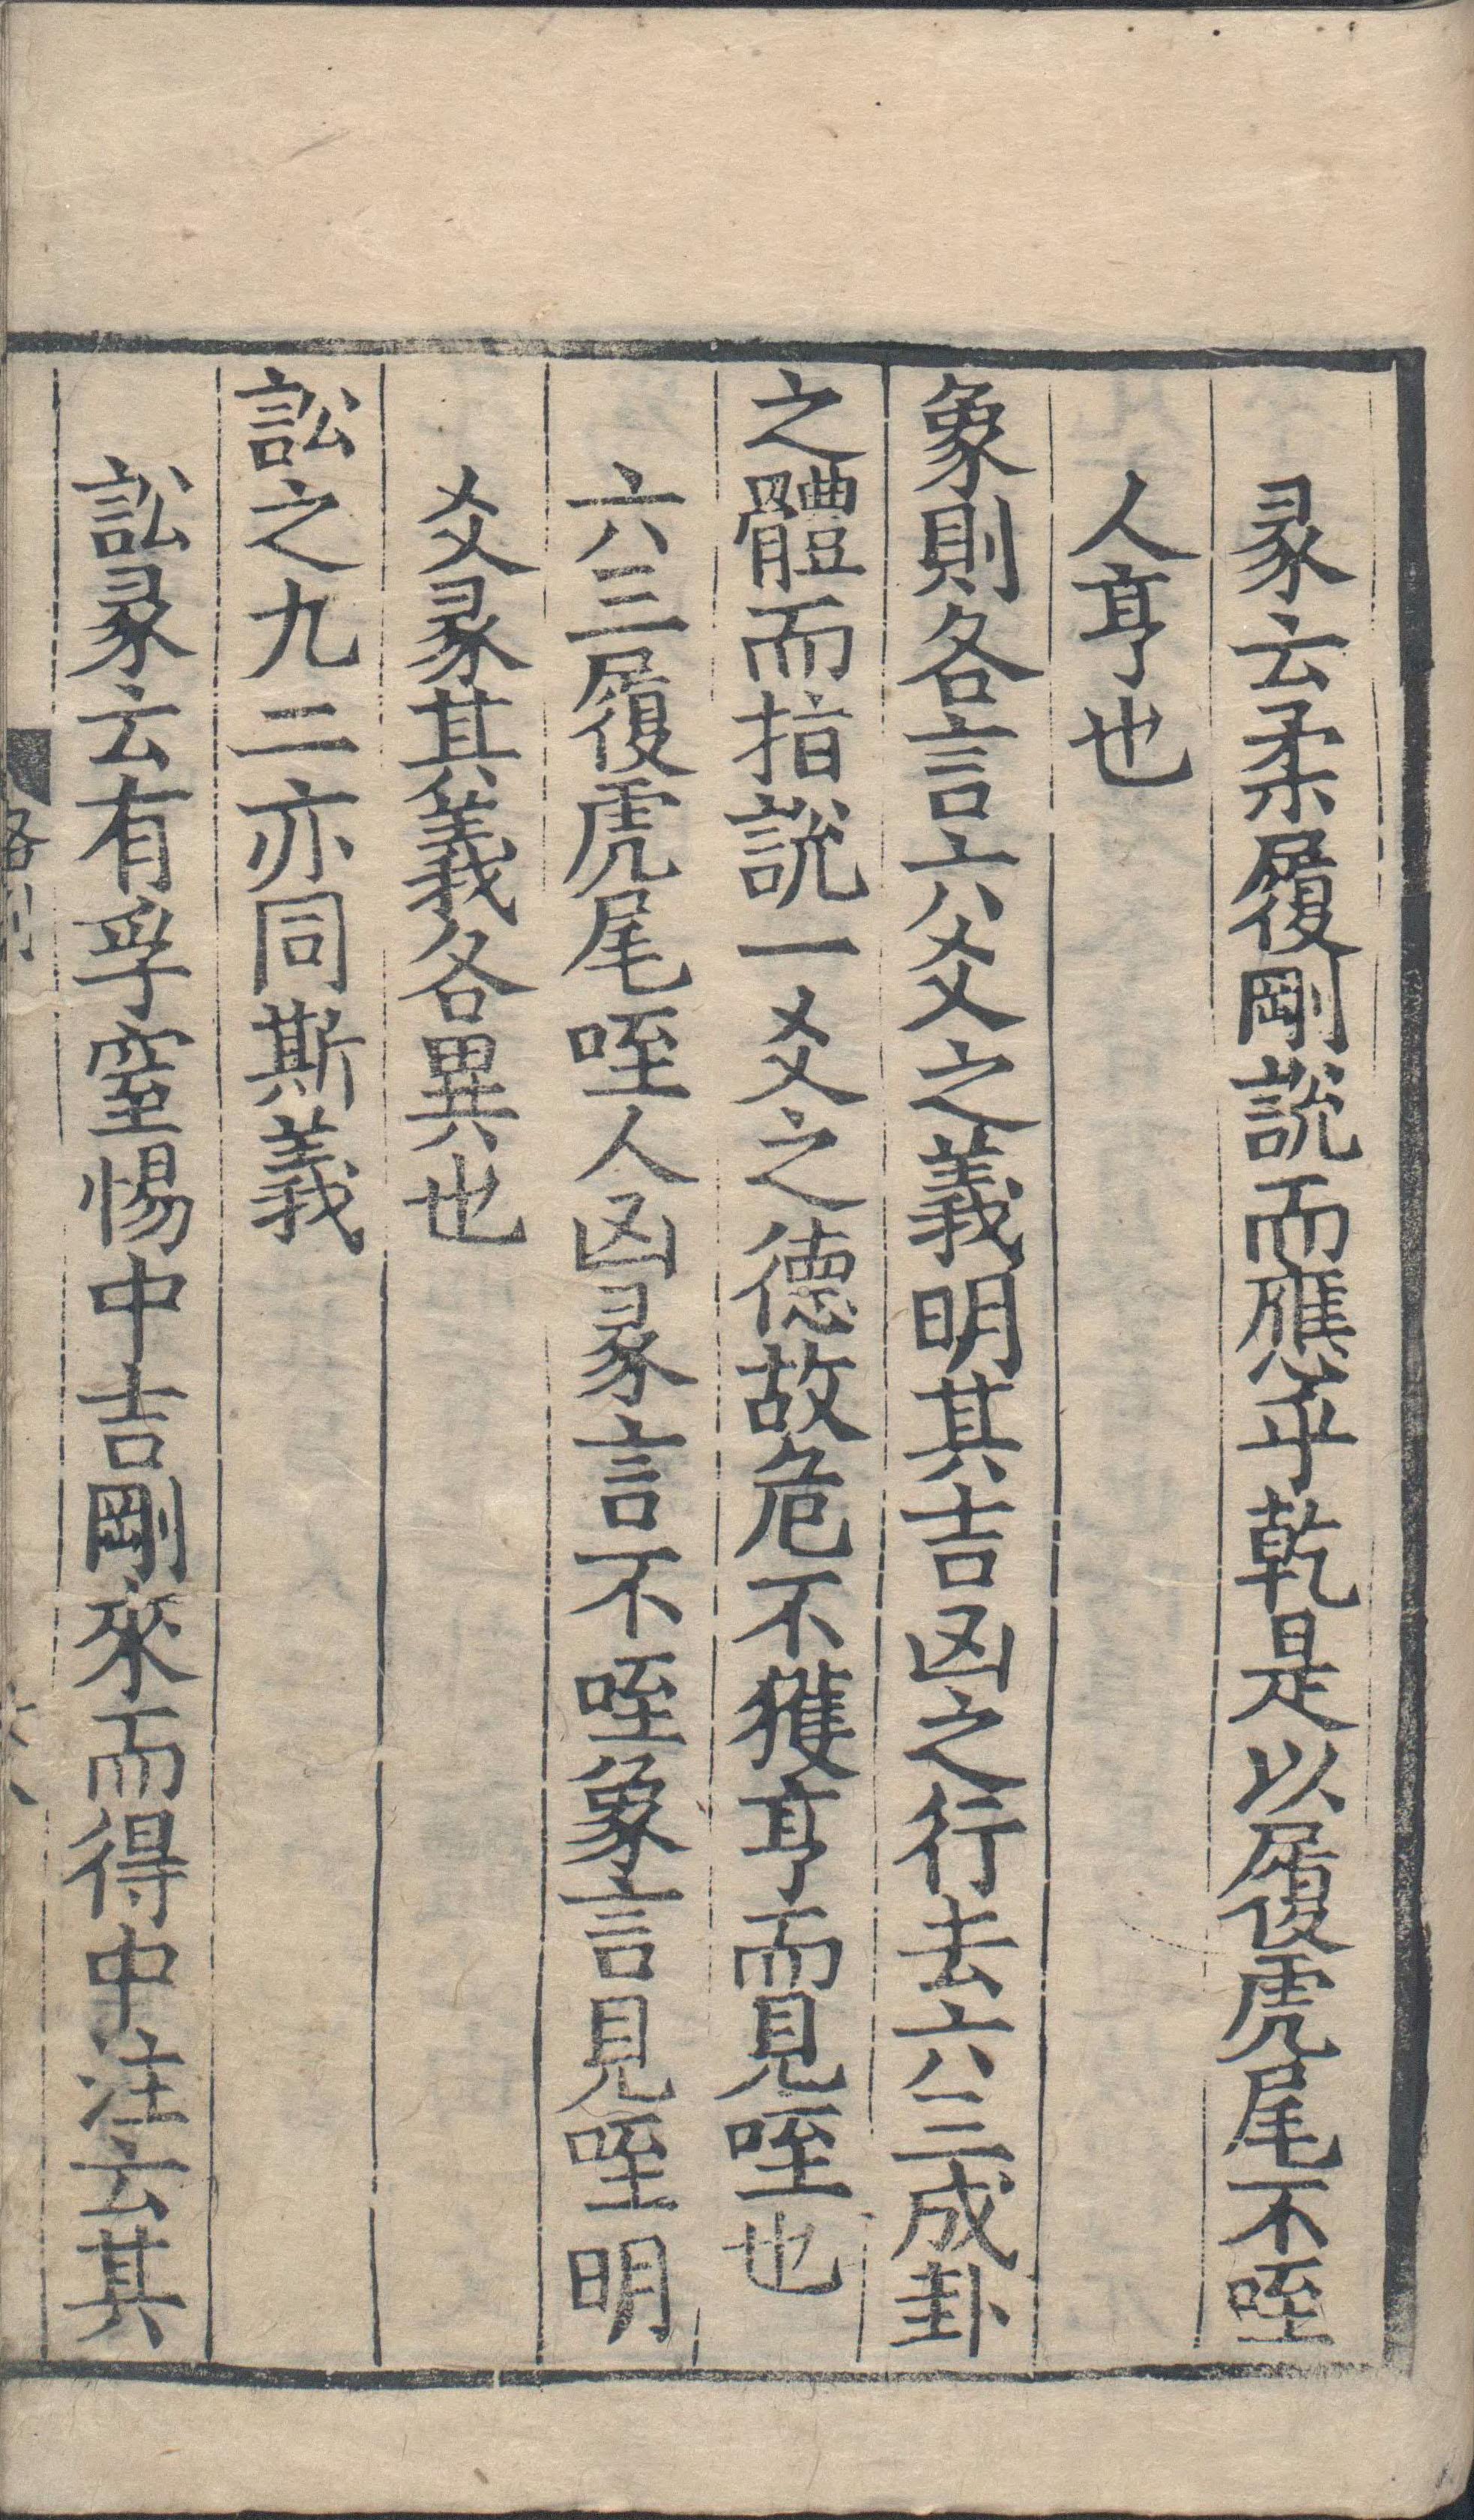 彖云柔履剛說而應乎乾是以履虎尾不咥
人亨也
象則各言六爻之義明其吉凶之行去六三成卦
之體而指說一爻之德故危不獲亨而見咥也
六三履虎尾咥人凶彖言不咥象言見咥明
爻彖其義各異也
訟之九二亦同斯義
訟彖云有孚窒惕中吉剛來而得中注云其